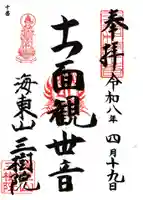 奉拝
令和八年 四月十九日
十一面観世音
海東山 三樹院
十番